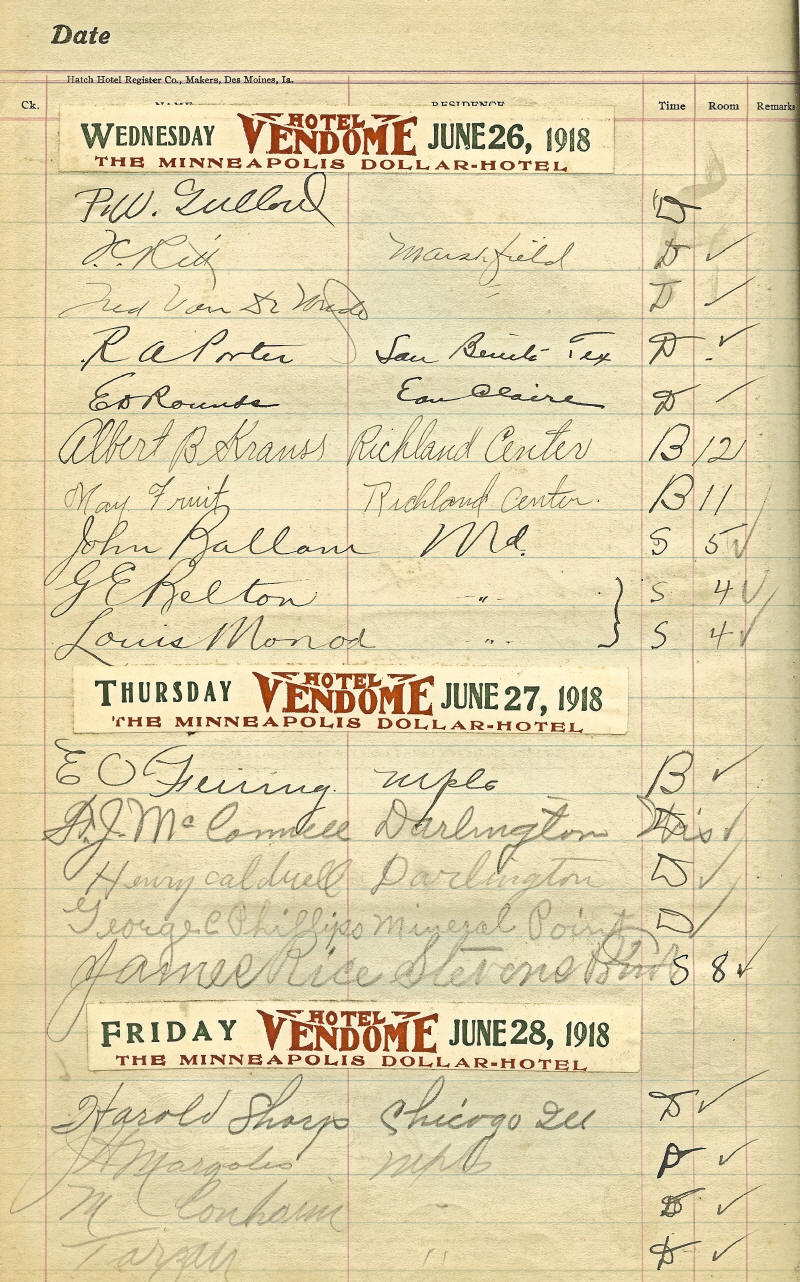 Date
Hatch Hotel Register Co., Makers, Des Moines, Ia.
Ck. NAME RESIDENCE Time Room Remarks
WEDNESDAY HOTEL VENDOME JUNE 26, 1918
THE MINNEAPOLIS DOLLAR-HOTEL
P.W. D
Marshfield D ✓
Fred Van " D ✓
R A Porter San Benito Tex D ✓
Ed Rounds Eau Claire D ✓
Albert B Krauss Richland Center B 12
May Fruit Richland Center. B 11
John Ballam Md. S 5 ✓
G E Belton " } S 4 ✓
Louis Monod " S 4 ✓
THURSDAY HOTEL VENDOME JUNE 27, 1918
THE MINNEAPOLIS DOLLAR-HOTEL
E O Mpls B ✓
J. McConnell Darlington Wis ✓
Henry Caldwell Darlington D ✓
George C Phillips Mineral Point D ✓
James Rice Stevens S 8 ✓
FRIDAY HOTEL VENDOME JUNE 28, 1918
THE MINNEAPOLIS DOLLAR-HOTEL
Harold Sharp Chicago Ill D ✓
Margoles Mpls D ✓
M D ✓
" D ✓